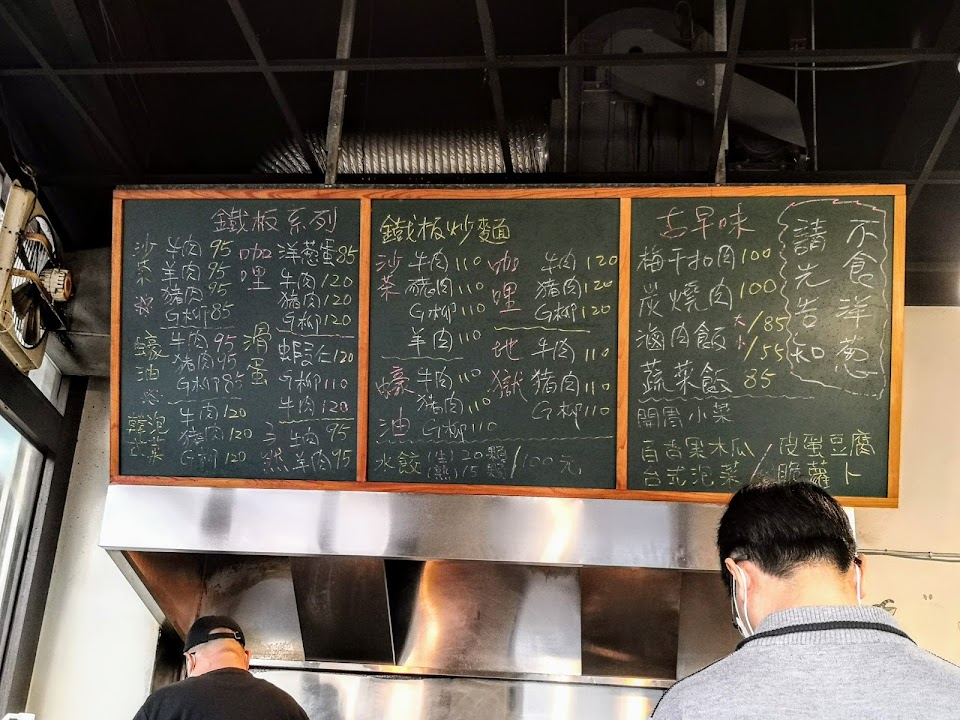 鐵板系列
沙茶
牛肉 95
羊肉 95
豬肉 95
G柳 85
蠔油
牛肉 95
豬肉 95
G柳 85
韓式泡菜
牛肉 120
豬肉 120
G柳 120
咖哩
洋葱蛋 85
牛肉 120
豬肉 120
G柳 120
滑蛋
蝦仁 120
G柳 110
牛肉 120
牛肉 95
羊肉 95
鐵板炒麵
沙茶
牛肉 110
豬肉 110
G柳 110
羊肉 110
蠔油
牛肉 110
豬肉 110
G柳 110
咖哩
牛肉 120
豬肉 120
G柳 120
地獄
牛肉 110
豬肉 110
G柳 110
水餃 (生) 20顆 / 100元
(熟) 15顆
古早味
梅干扣肉 100
炭燒肉 100
滷肉飯 大/85
小/55
蔬菜飯 85
開胃小菜
百香果木瓜 / 皮蛋豆腐
台式泡菜 / 脆蘿卜
不食洋葱
請先告知